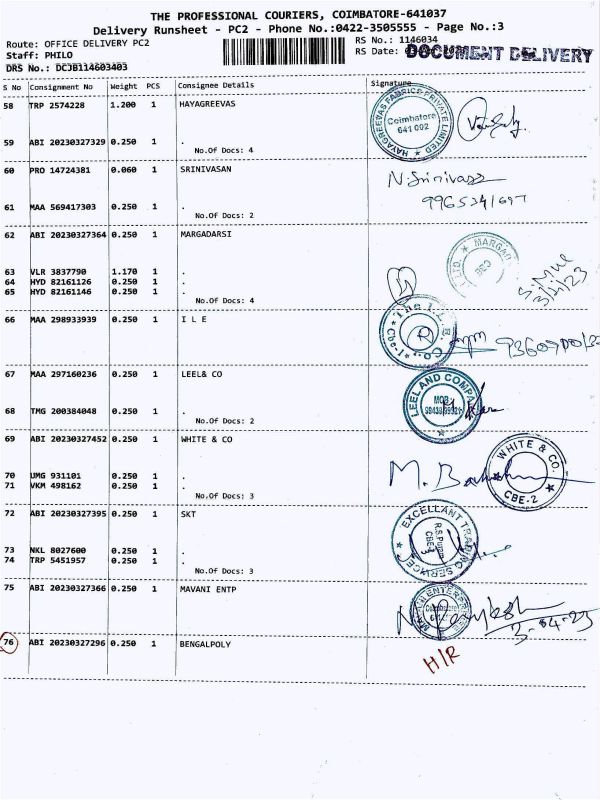 THE PROFESSIONAL COURIERS, COIMBATORE-641037
Delivery Runsheet - PC2 - Phone No.:0422-3505555 - Page No.:3
Route: OFFICE DELIVERY PC2 RS No.: 1146034
Staff: PHILO RS Date:
DOCUMENT DELIVERY
DRS No.: DCJB114603403
S No Consignment No Weight PCS Consignee Details Signature
58 TRP 2574228 1.200 1 HAYAGREEVAS
HAYAGREEVAS FABRICS PRIVATE LIMITED
Coimbatore
641 002
59 ABI 20230327329 0.250 1 .
No.Of Docs: 4
60 PRO 14724381 0.060 1 SRINIVASAN
N. Srinivasa
61 MAA 569417303 0.250 1 .
No.Of Docs: 2
62 ABI 20230327364 0.250 1 MARGADARSI
MARGAD
63 VLR 3837790 1.170 1 .
64 HYD 82161126 0.250 1 .
65 HYD 82161146 0.250 1 .
No.Of Docs: 4
66 MAA 298933939 0.250 1 I L E
67 MAA 297160236 0.250 1 LEEL& CO
LEELAND COMPA
MOB:
68 TMG 200384048 0.250 1 .
No.Of Docs: 2
69 ABI 20230327452 0.250 1 WHITE & CO
WHITE & CO.
CBE-2
70 UMG 931101 0.250 1 .
71 VKM 498162 0.250 1 .
No.Of Docs: 3
72 ABI 20230327395 0.250 1 SKT
EXCELLANT TRADING SERVICE
R.S.Puram
73 NKL 8027600 0.250 1 .
74 TRP 5451957 0.250 1 .
No.Of Docs: 3
75 ABI 20230327366 0.250 1 MAVANI ENTP
3-04-23
76 ABI 20230327296 0.250 1 BENGALPOLY
H/R